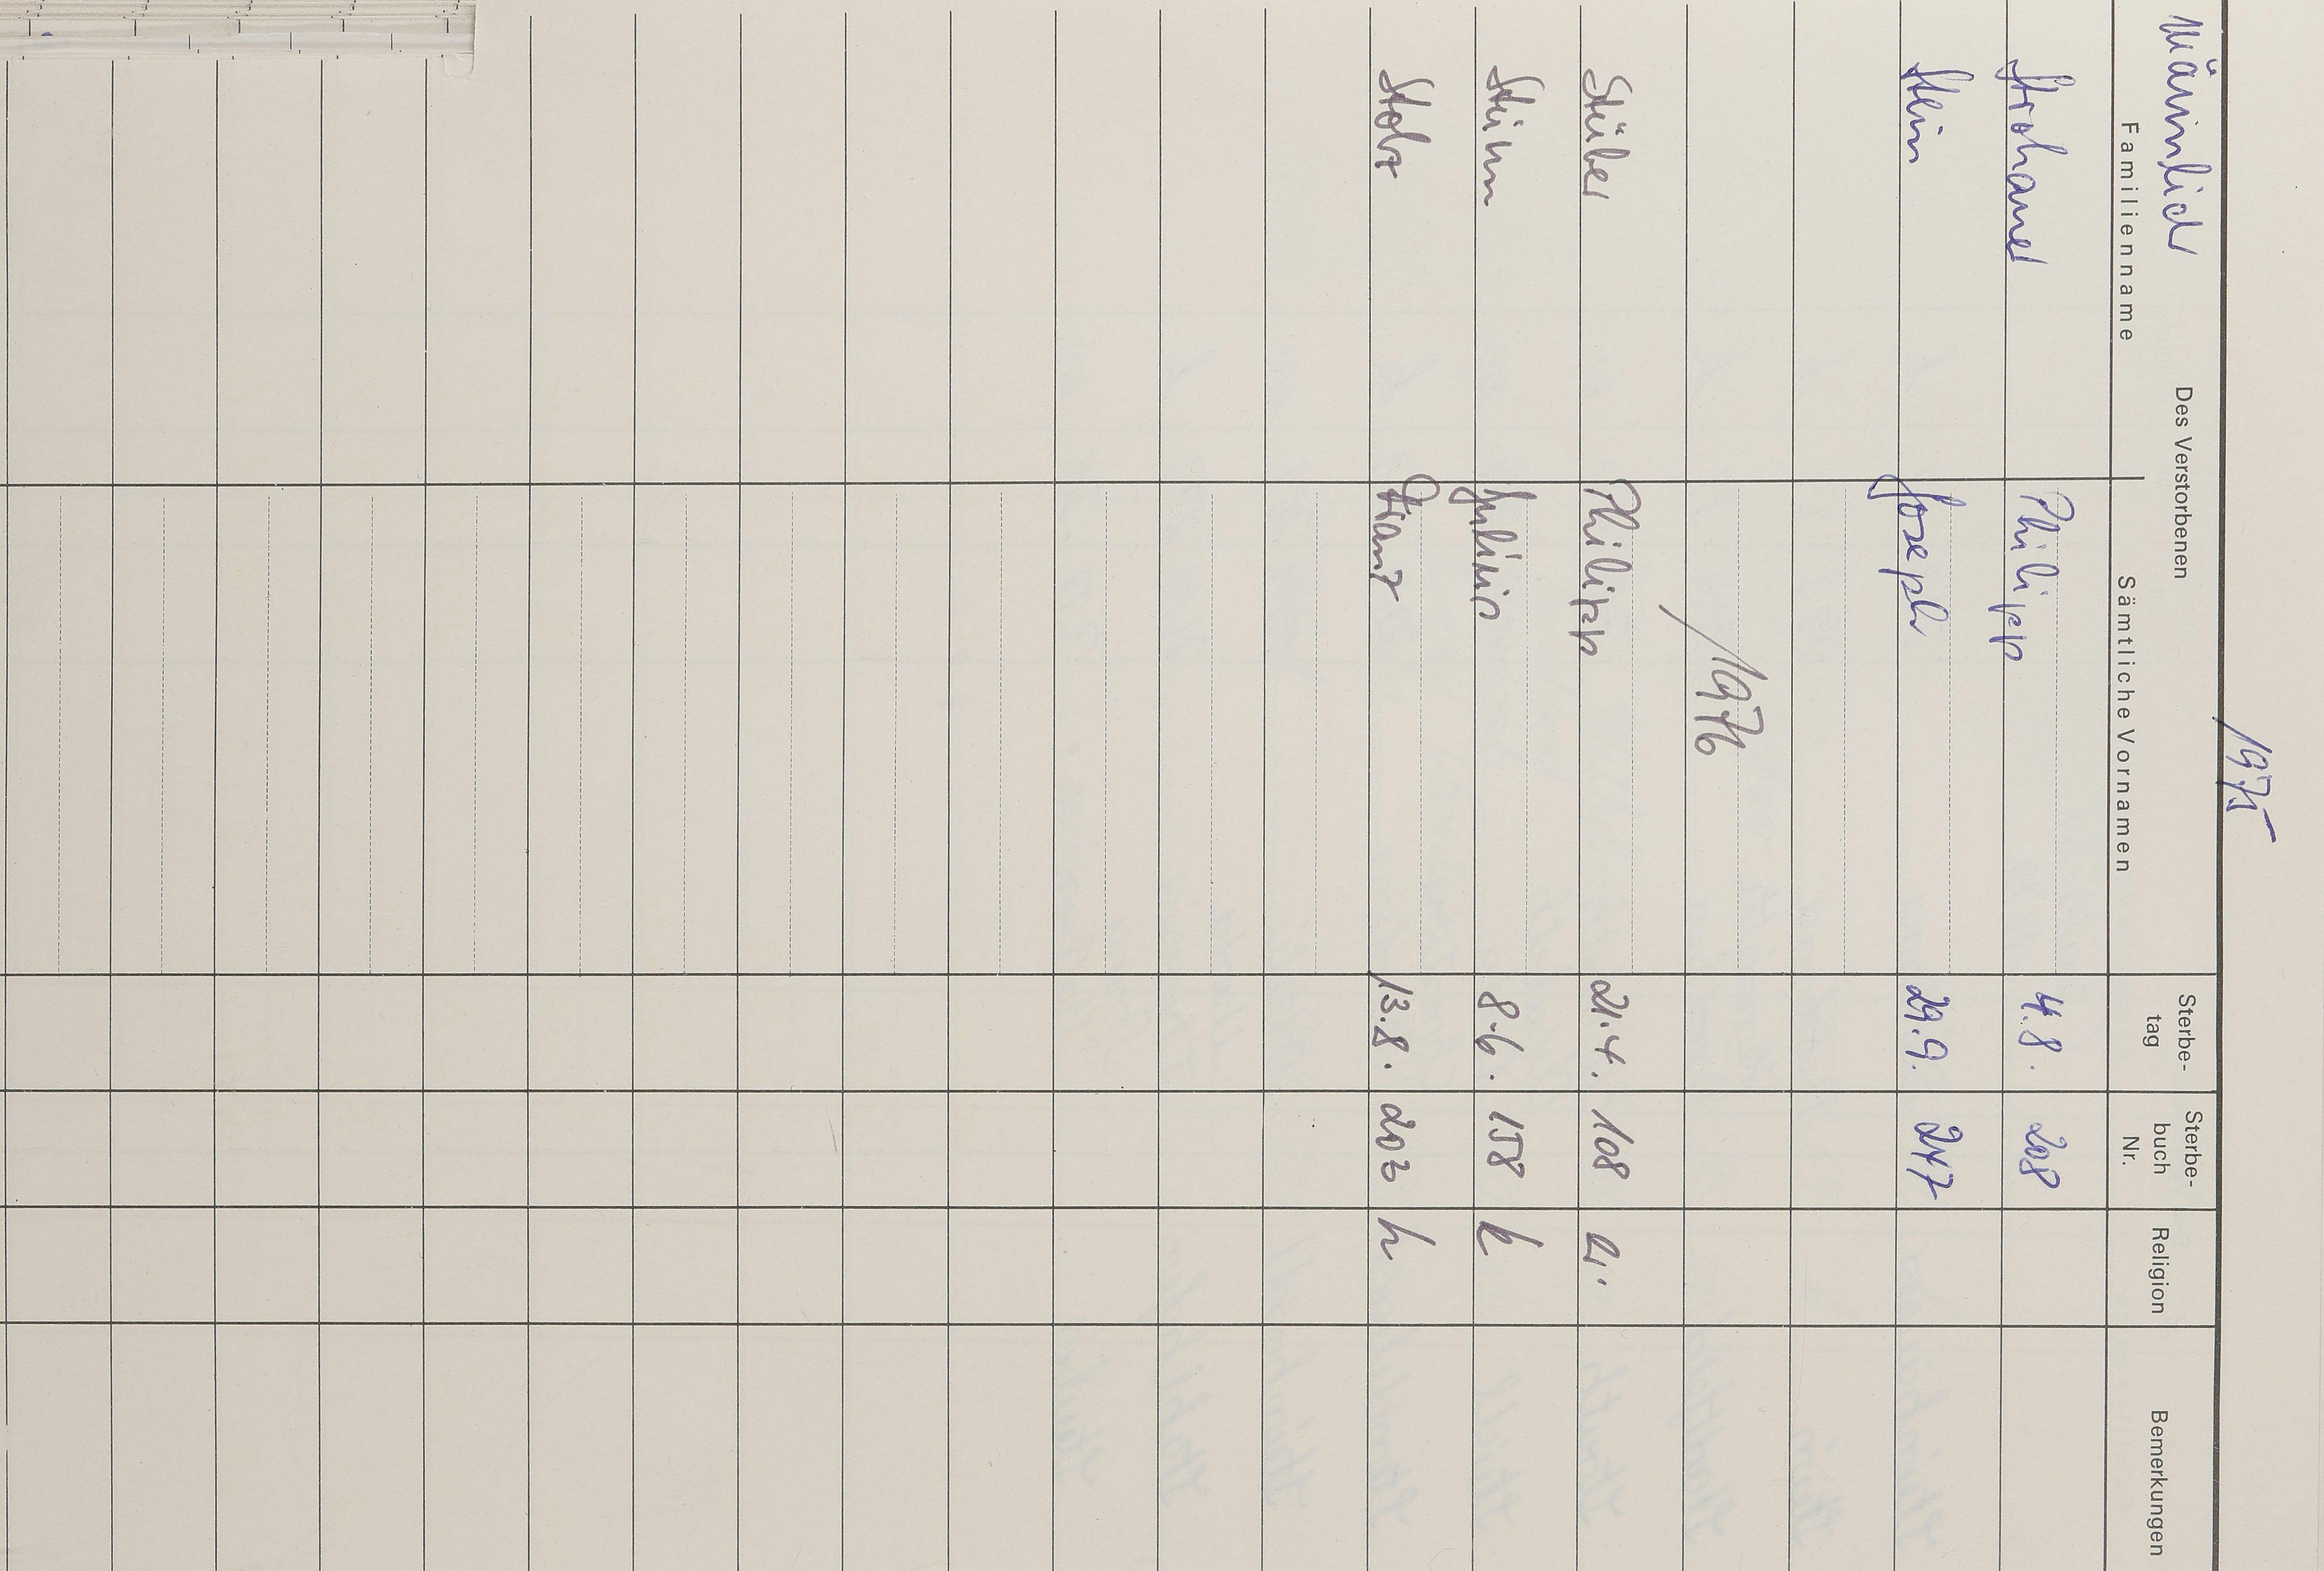 1975
männlich
Des Verstorbenen
Familienname
Sämtliche Vornamen
Sterbe-
tag
Sterbe-
buch
Nr.
Religion
Bemerkungen
Strohauer Philipp 4.8. 208
Stein Joseph 29.9. 247
1976
Stüber Philipp 21.4. 108 ev.
Sturm Julius 8.6. 158 k
Stolz Franz 13.8. 203 k